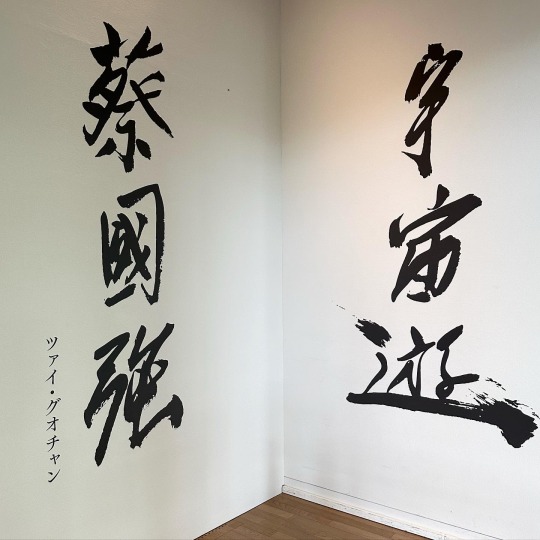 宇宙遊
蔡國強
ツァイ・グオチャン